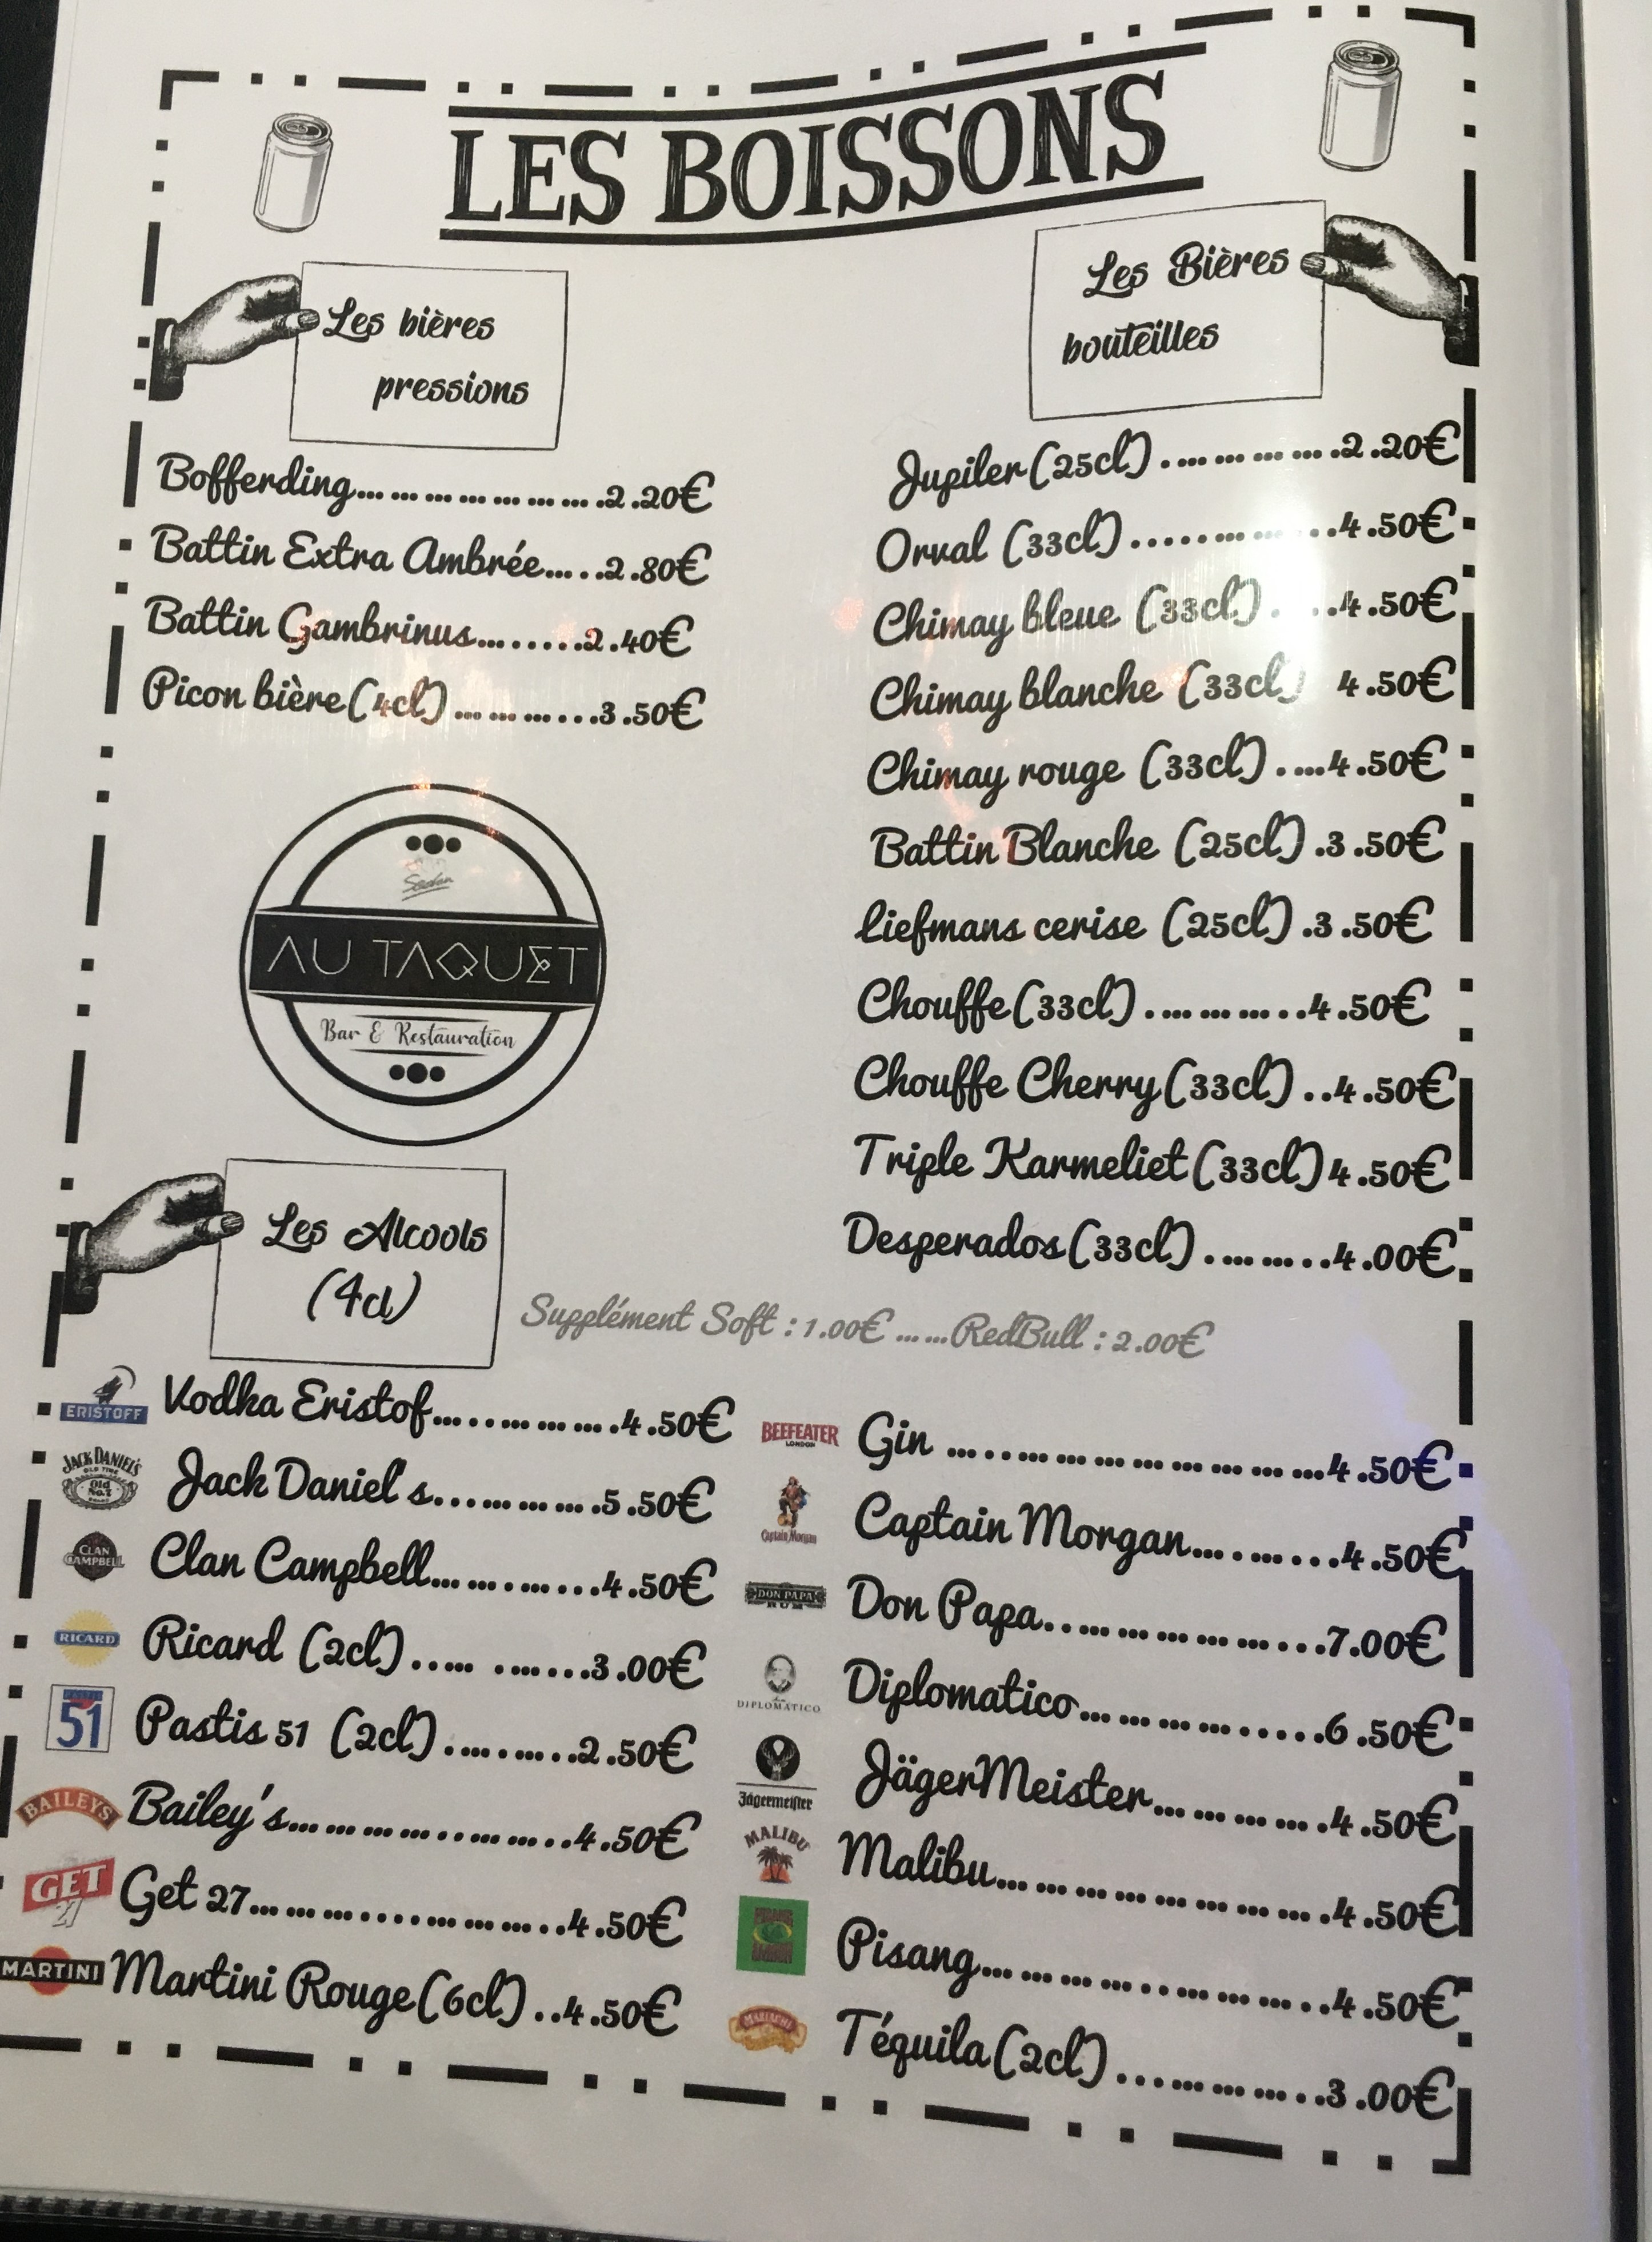 LES BOISSONS
Les bières
pressions
Bofferding....................2.20€
Battin Extra Ambrée.....2.80€
Battin Gambrinus........2.40€
Picon bière(4cl)............3.50€
Les Bières
bouteilles
Jupiler(25cl)..............2.20€
Orval (33cl)..............4.50€
Chimay bleue (33cl). ..4.50€
Chimay blanche (33cl) 4.50€
Chimay rouge (33cl)....4.50€
Battin Blanche (25cl).3.50€
liefmans cerise (25cl).3.50€
Chouffe(33cl)............4.50€
Chouffe Cherry(33cl)..4.50€
Triple Karmeliet(33cl)4.50€
Desperados(33cl).........4.00€
Sedan
AU TAQUET
Bar & Restauration
Les Alcools
(4cl)
Supplément Soft : 1.00€ ......RedBull : 2.00€
ERISTOFF Vodka Eristof..............4.50€
JACK DANIEL'S OLD TIME Old No.7 Jack Daniel's.............5.50€
CLAN CAMPBELL Clan Campbell.............4.50€
RICARD Ricard (2cl)..... .......3.00€
51 Pastis 51 (2cl)..........2.50€
BAILEYS Bailey's......................4.50€
GET 27 Get 27........................4.50€
MARTINI Martini Rouge(6cl)..4.50€
BEEFEATER LONDON Gin ..........................4.50€
Captain Morgan Captain Morgan..........4.50€
DON PAPA RUM Don Papa....................7.00€
DIPLOMÁTICO Diplomatico.................6.50€
Jägermeister JägerMeister.............4.50€
MALIBU Malibu......................4.50€
Pisang........................4.50€
MARIACHI Téquila(2cl)..............3.00€